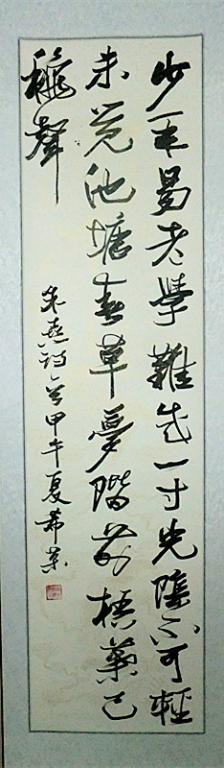 少年易老學難成一寸光陰不可輕
未覺池塘春草夢階前梧葉已
秋聲
朱熹詩 甲午夏